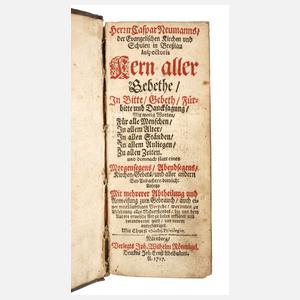 Herrn Caspar Neumanns,
der Evangelischen Kirchen und
Schulen in Breßlau
Inspectoris
Kern aller
Gebethe/
In Bitte/ Gebeth/ Für-
bitte und Dancksagung/
Mit wenig Worten/
Für alle Menschen/
In allem Alter/
In allen Ständen/
In allem Anliegen/
Zu allen Zeiten.
und demnach statt eines
Morgensegens/ Abendsegens/
Kirchen-Gebets/ und aller andern
Mit mehrerer Abtheilung und
Anweisung zum Gebrauch/ auch ei-
Nürnberg/
Verlegts Joh. Wilhelm Rönnagel.
Druckts Joh. Ernst Adelbulner.
A. 1717.